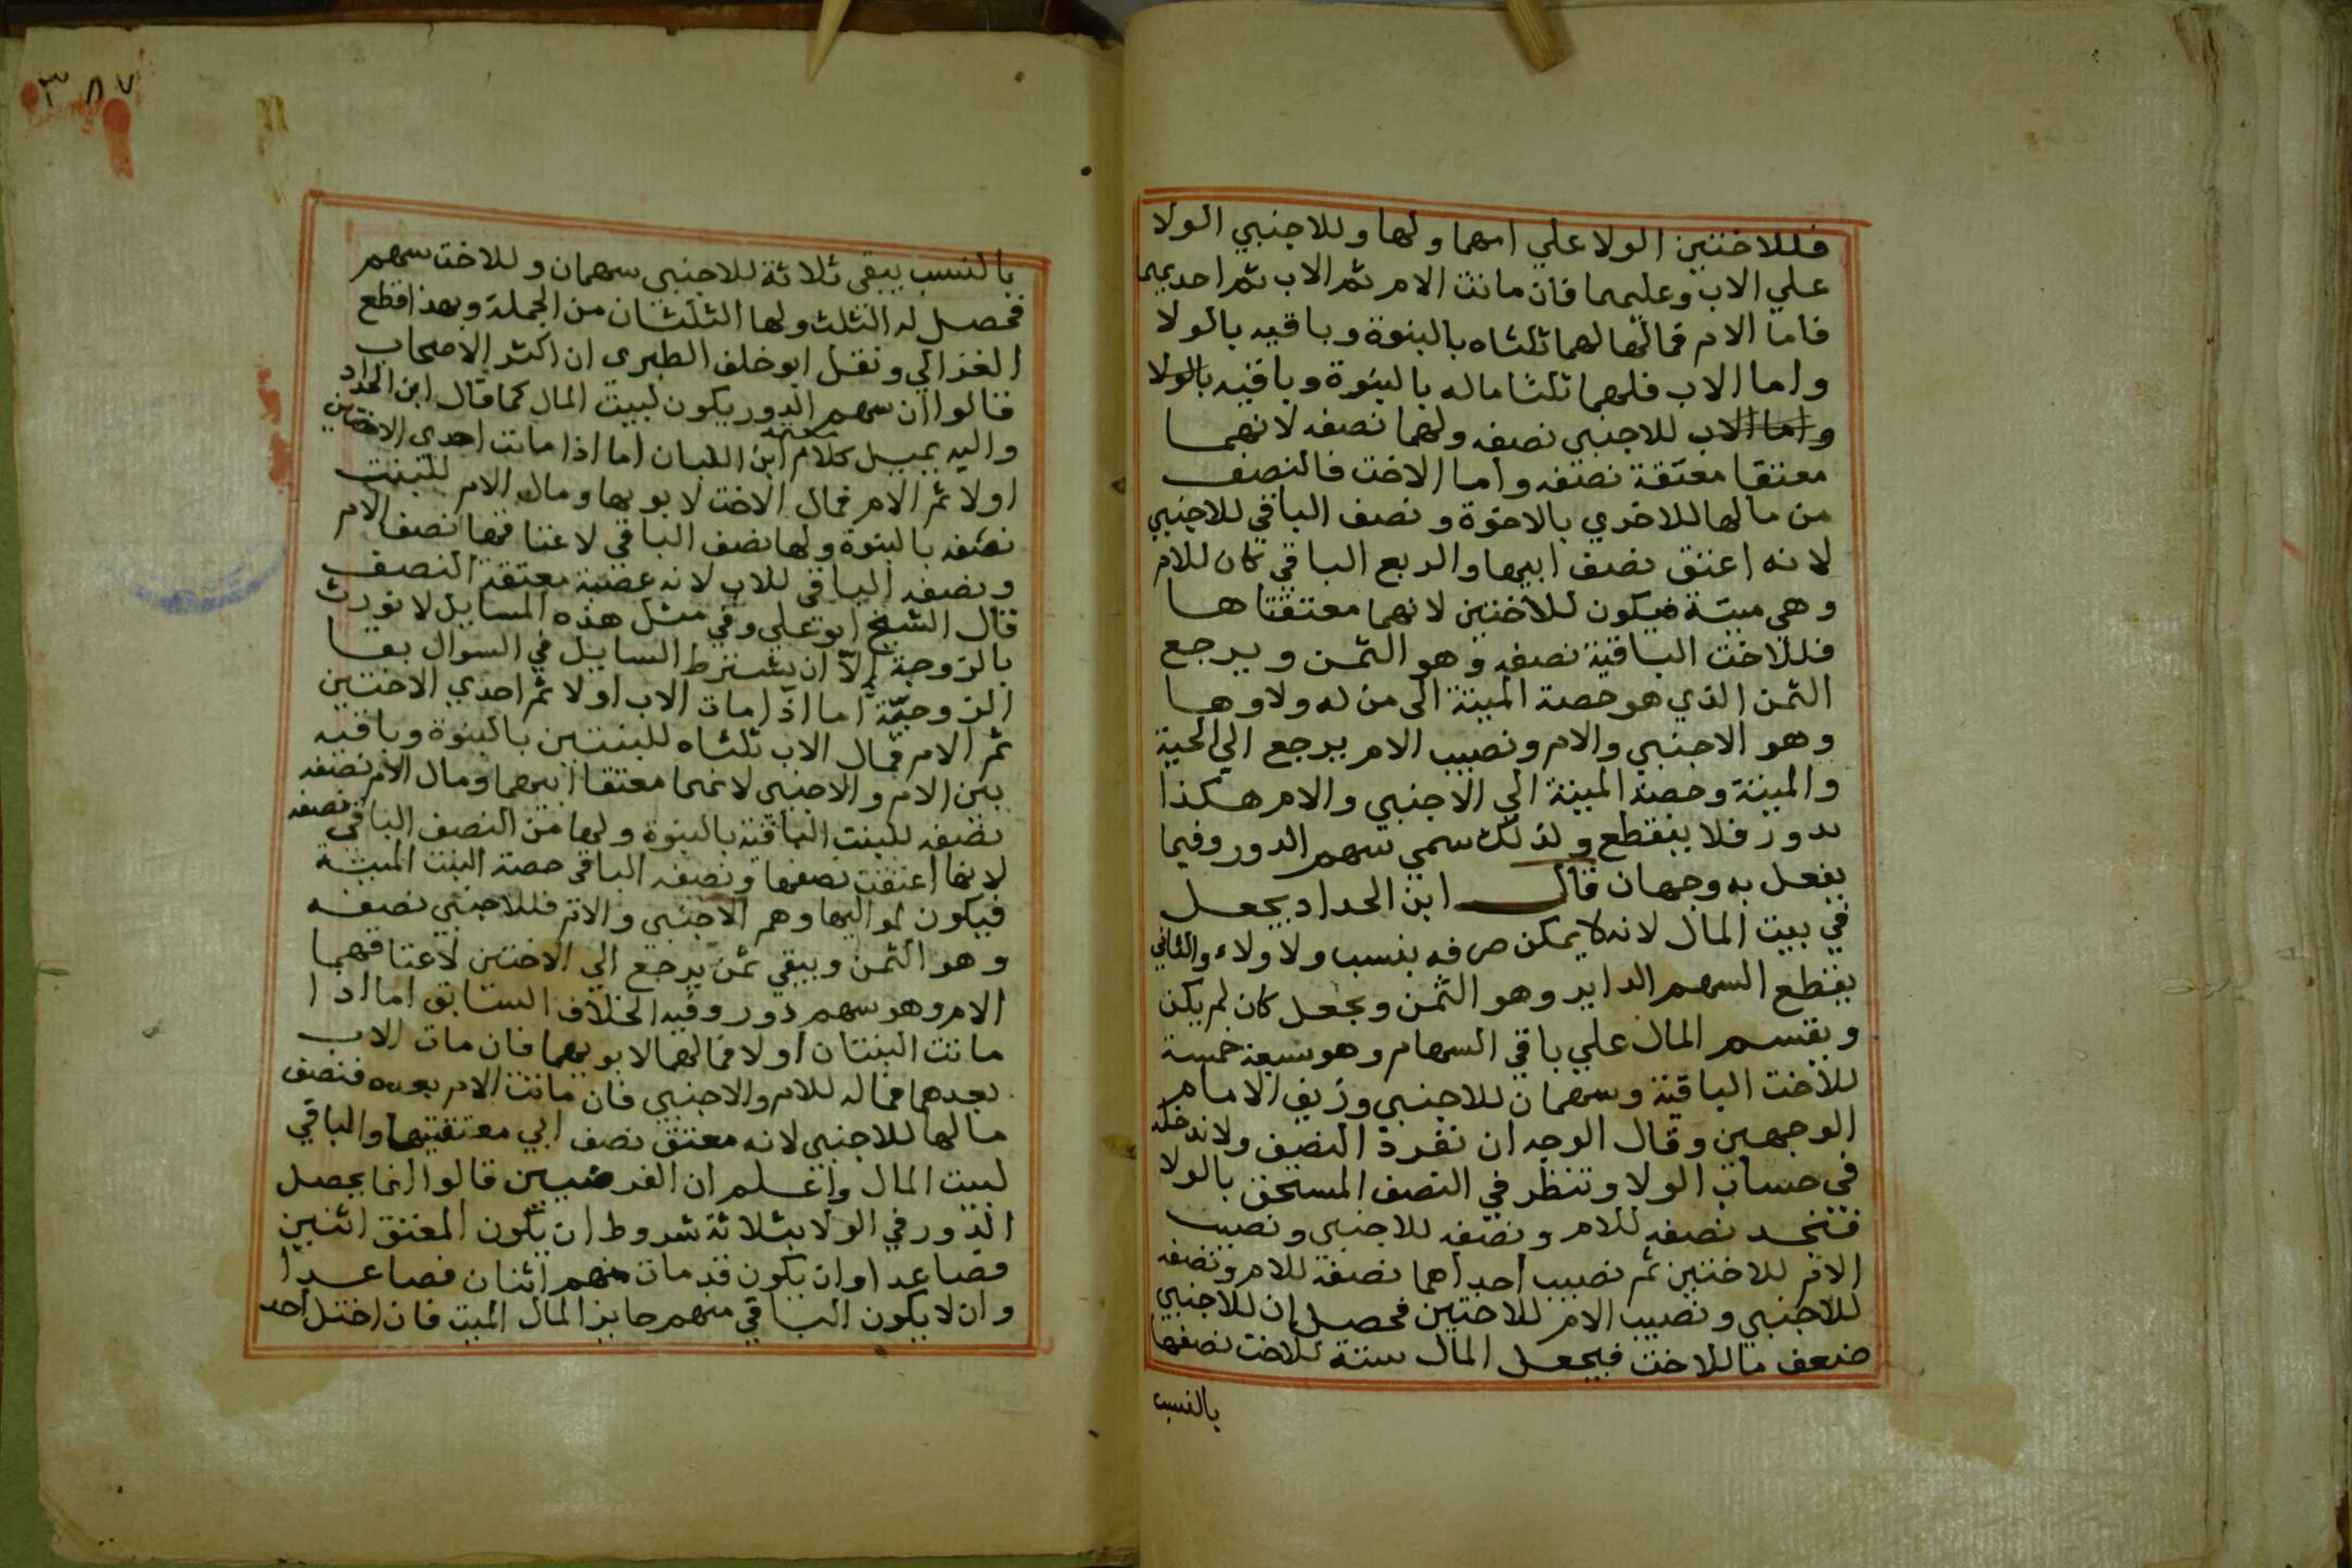 فللاختين الولا علي امهما ولها وللاجنبي الولا
علي الاب وعليهما فان ماتت الام ثم الاب ثم احديهما
فاما الام فمالها لهما ثلثاه بالبنوة وباقيه بالولا
واما الاب فلهما ثلثا ماله بالبنوة وباقيه بالولا
واما الاب للاجنبي نصفه ولهما نصفه لانهما
معتقا معتقة نصفه واما الاخت فالنصف
من مالها للاخري بالاخوة ونصف الباقي للاجنبي
لانه اعتق نصف ابيها والربع الباقي كان للام
وهي ميتة فيكون للاختين لانهما معتقتاها
فللاخت الباقية نصفه وهو الثمن ويرجع
الثمن الذي هو حصة الميتة الي من له ولاوها
وهو الاجنبي والام ونصيب الام يرجع الي الحية
والميتة وحصة الميتة الي الاجنبي والام هكذا
يدور فلا ينقطع ولذلك سمي سهم الدور وفيما
يفعل به وجهان قال ابن الحداد يجعل
في بيت المال لانه لا يمكن صرفه بنسب ولا ولاء والثاني
يقطع السهم الداير وهو الثمن ويجعل كان لم يكن
ويقسم المال علي باقي السهام وهو سبعة خمسة
للاخت الباقية وسهمان للاجنبي وزيف الامام
الوجهين وقال الوجه ان نفرد النصف ولا ندخله
في حساب الولا وننظر في النصف المستحق بالولا
فنجد نصفه للام ونصفه للاجنبي ونصيب
الام للاختين ثم نصيب احداهما نصفه للام ونصفه
للاجنبي ونصيب الام للاختين فحصل ان للاجنبي
ضعف ما للاخت فيجعل المال ستة للاخت نصفها
بالنسب
٣٨٧
بالنسب يبقي ثلاثة للاجنبي سهمان وللاخت سهم
فحصل له الثلث ولها الثلثان من الجملة وبهذا قطع
الغزالي ونقل ابو خلف الطبري ان اكثر الاصحاب
قالوا ان سهم الدور يكون لبيت المال كما قال ابن الحداد
واليه يميل كلام ابن اللبان اما اذا ماتت احدي الاختين
اولا ثم الام فمال الاخت لابويها ومال الام للبنت
نصفه بالبنوة ولها نصف الباقي لاعتاقها نصف الام
ونصفه الباقي للاب لانه عصبة معتقة النصف
قال الشيخ ابو علي وفي مثل هذه المسايل لا نورث
بالزوجية الا ان يشترط السايل في السوال بقا
الزوجية اما اذا مات الاب اولا ثم احدي الاختين
ثم الام فمال الاب ثلثاه للبنتين بالبنوة وباقيه
بين الام والاجنبي لانهما معتقا ابيهما ومال الام نصفه
نصفه للبنت الباقية بالبنوة ولها من النصف الباقي نصفه
لانها اعتقت نصفها ونصفه الباقي حصة البنت الميتة
فيكون لمواليها وهم الاجنبي والام فللاجنبي نصفه
وهو الثمن ويبقي ثمن يرجع الي الاختين لاعتاقهما
الام وهو سهم دور وفيه الخلاف السابق اما اذا
ماتت البنتان اولا فمالهما لابويهما فان مات الاب
بعدهما فماله للام والاجنبي فان ماتت الام بعده فنصف
مالها للاجنبي لانه معتق نصف ابي معتقتيها والباقي
لبيت المال واعلم ان الفرضيين قالوا انما يحصل
الدور في الولا بثلاثة شروط ان يكون المعتق اثنين
فصاعدا وان يكون قد مات منهم اثنان فصاعدا
وان لا يكون الباقي منهم حايز المال الميت فان اختل احد